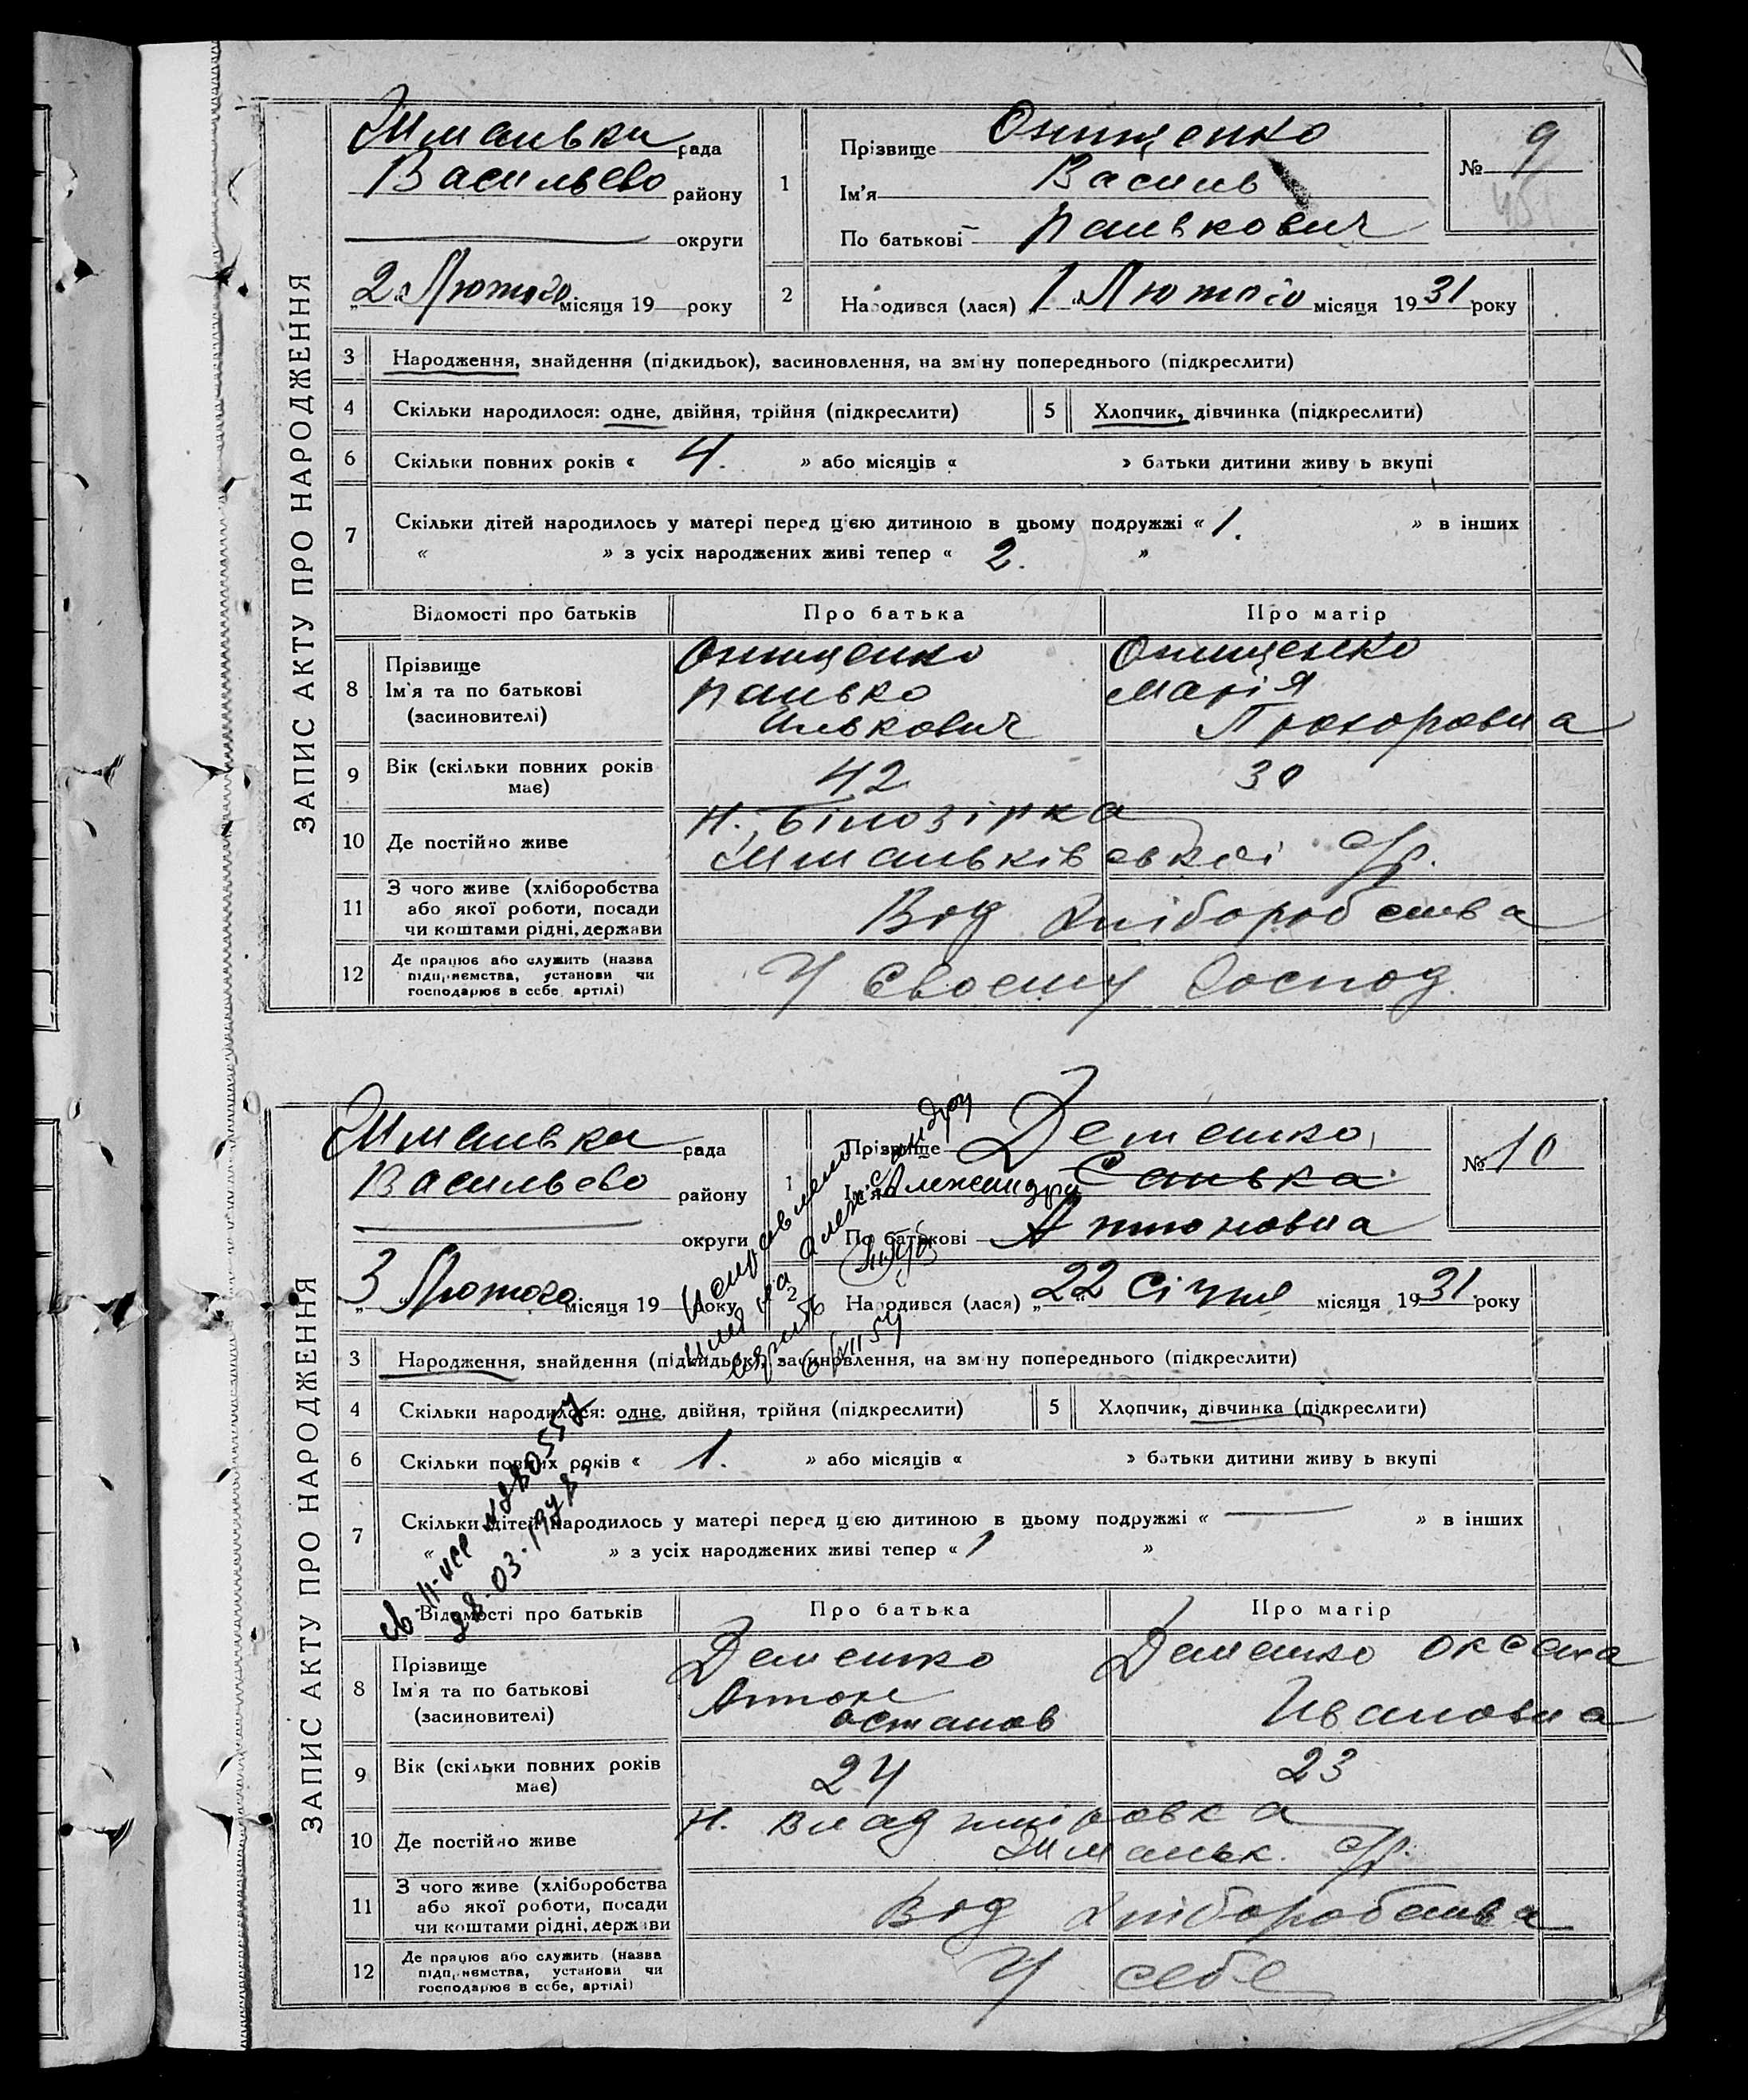 ЗАПИС АКТУ ПРО НАРОДЖЕННЯ
рада
Васильево району
округи
2 Лютого місяця 19 — року
1
Прізвище Онищенко
Ім'я Василь
По батькові Панькович
№ 9
2
Народився (лася) 1 Лютого місяця 1931 року
3 Народження, знайдення (підкидьок), засиновлення, на зміну попереднього (підкреслити)
4 Скільки народилося: одне, двійня, трійня (підкреслити)
5 Хлопчик, дівчинка (підкреслити)
6 Скільки повних років « 4. » або місяців « » батьки дитини живуть вкупі
7 Скільки дітей народилось у матері перед цією дитиною в цьому подружжі « 1. » в інших
« » з усіх народжених живі тепер « 2. »
Відомості про батьків Про батька Про матір
8 Прізвище
Ім'я та по батькові
(засиновителі)
Онищенко
Панько
Илькович
Онищенко
Марія
Прохоровна
9 Вік (скільки повних років
має)
42
30
10 Де постійно живе
Н. Білозірка
с/р.
11 З чого живе (хліборобства
або якої роботи, посади
чи коштами рідні, держави
Від хліборобства
12 Де працює або служить (назва
підприємства, установи чи
господарює в себе, артілі)
У своему господ.
ЗАПИС АКТУ ПРО НАРОДЖЕННЯ
рада
Васильево району
округи
3 Лютого місяця 19 — року
1
Прізвище Деменко
Ім'я Александра Санька
По батькові Антоновна
№ 10
2
Народився (лася) 22 Січня місяця 1931 року
Исправлено
имя на Александру
верить
3 Народження, знайдення (підкидьок), засиновлення, на зміну попереднього (підкреслити)
4 Скільки народилося: одне, двійня, трійня (підкреслити)
5 Хлопчик, дівчинка (підкреслити)
6 Скільки повних років « 1. » або місяців « » батьки дитини живуть вкупі
7 Скільки дітей народилось у матері перед цією дитиною в цьому подружжі « — » в інших
« » з усіх народжених живі тепер « 1 »
28-03-
Відомості про батьків Про батька Про матір
8 Прізвище
Ім'я та по батькові
(засиновителі)
Деменко
Антон
Остапов
Деменко Оксана
Ивановна
9 Вік (скільки повних років
має)
24
23
10 Де постійно живе
Н. Владиміровка
с/р.
11 З чого живе (хліборобства
або якої роботи, посади
чи коштами рідні, держави
Від хліборобства
12 Де працює або служить (назва
підприємства, установи чи
господарює в себе, артілі)
У себе